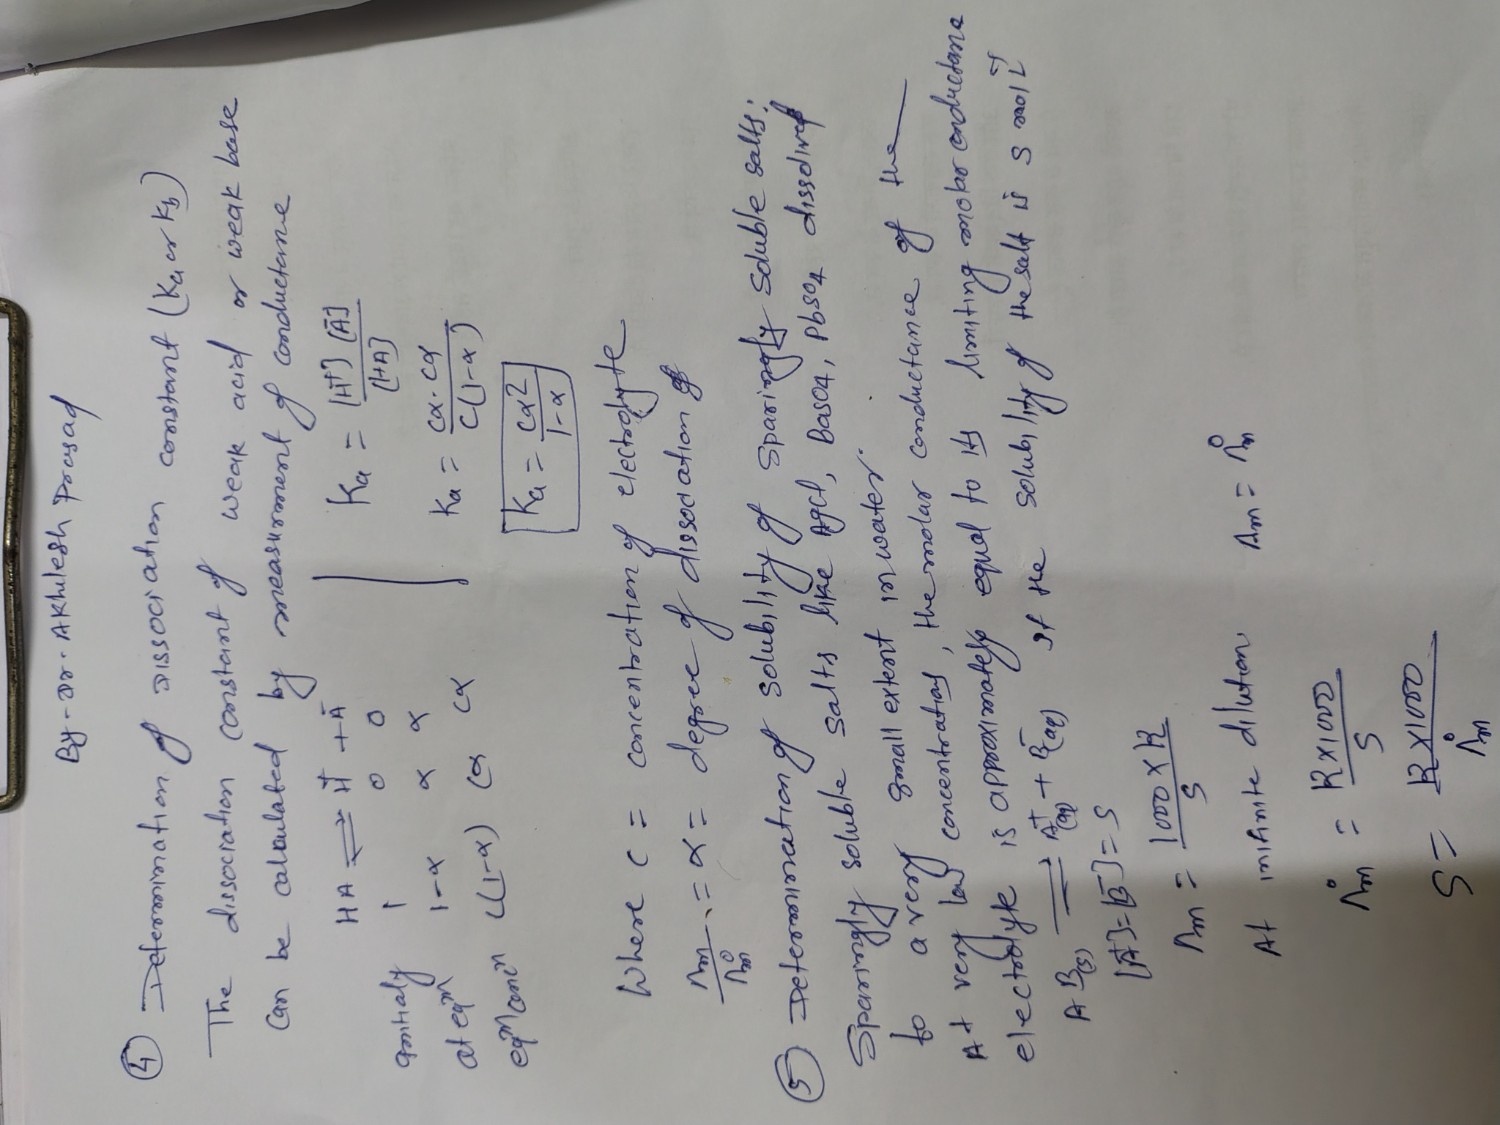 By - Dr. Akhilesh Prasad
④ Determination of Dissociation constant (Ka or Kb)
The dissociation constant of weak acid or weak base
can be calculated by measurement of conductance
HA ⇌ H⁺ + A⁻
initialy 1 0 0
at eqᵐ 1-α α α
eqᵐ concⁿ C(1-α) Cα Cα
Ka = [H⁺] [A⁻] / [HA]
Ka = Cα·Cα / C(1-α)
Ka = Cα² / 1-α
Where C = concentration of electrolyte
Λm / Λ°m = α = degree of dissociation of
⑤ Determination of solubility of sparingly soluble salts:
Sparingly soluble salts like AgCl, BaSO4, PbSO4 dissolved
to a very small extent in water.
At very low concentration, the molar conductance of the
electrolyte is approximately equal to its limiting molar conductance
AB(s) ⇌ A⁺(aq) + B⁻(aq) If the solubility of the salt is S mol L⁻¹
[A⁺] = [B⁻] = S
Λm = 1000 × K / S
At infinite dilution Λm = Λ°m
Λ°m = K × 1000 / S
S = K × 1000 / Λ°m